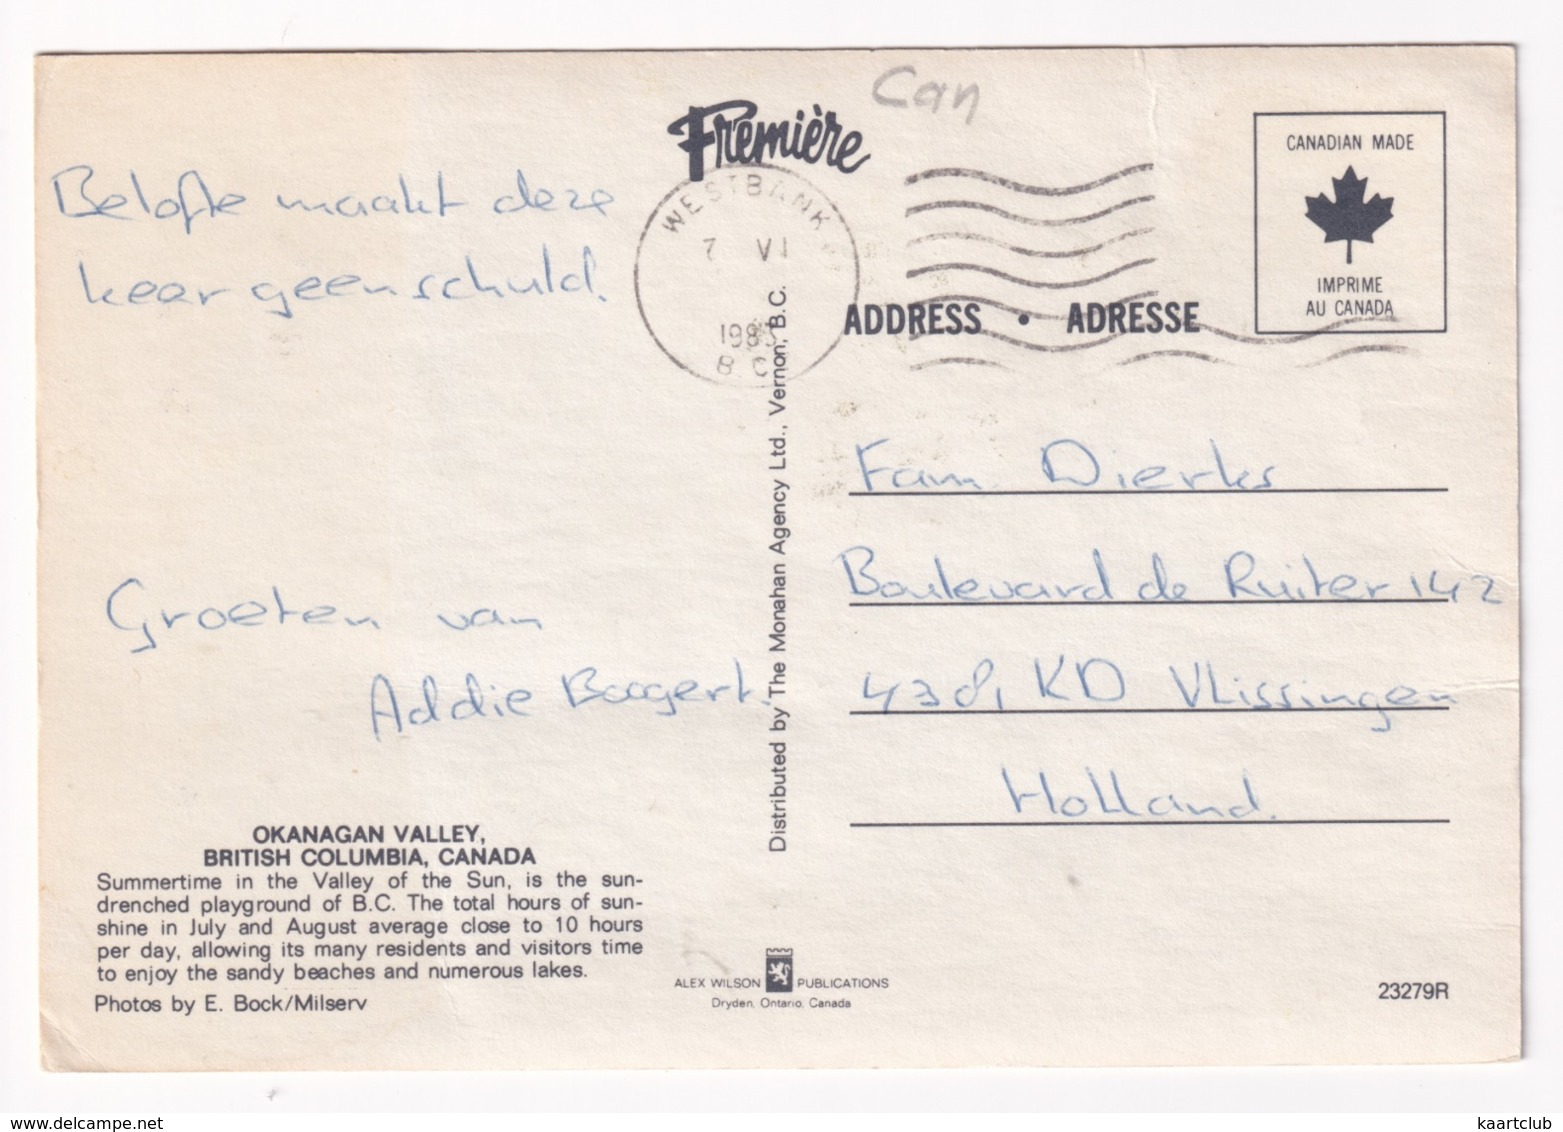 Can
Première
CANADIAN MADE
IMPRIME
AU CANADA
WESTBANK
7 VI
1985
B C
ADDRESS • ADRESSE
Belofte maakt deze
keer geen schuld.
Groeten van
Addie Boogert.
Fam Dierks
Boulevard de Ruiter 142
4381 KD Vlissingen
Holland.
Distributed by The Monahan Agency Ltd., Vernon, B.C.
OKANAGAN VALLEY,
BRITISH COLUMBIA, CANADA
Summertime in the Valley of the Sun, is the sun-
drenched playground of B.C. The total hours of sun-
shine in July and August average close to 10 hours
per day, allowing its many residents and visitors time
to enjoy the sandy beaches and numerous lakes.
Photos by E. Bock/Milserv
ALEX WILSON PUBLICATIONS
Dryden, Ontario, Canada
23279R
kaartclub